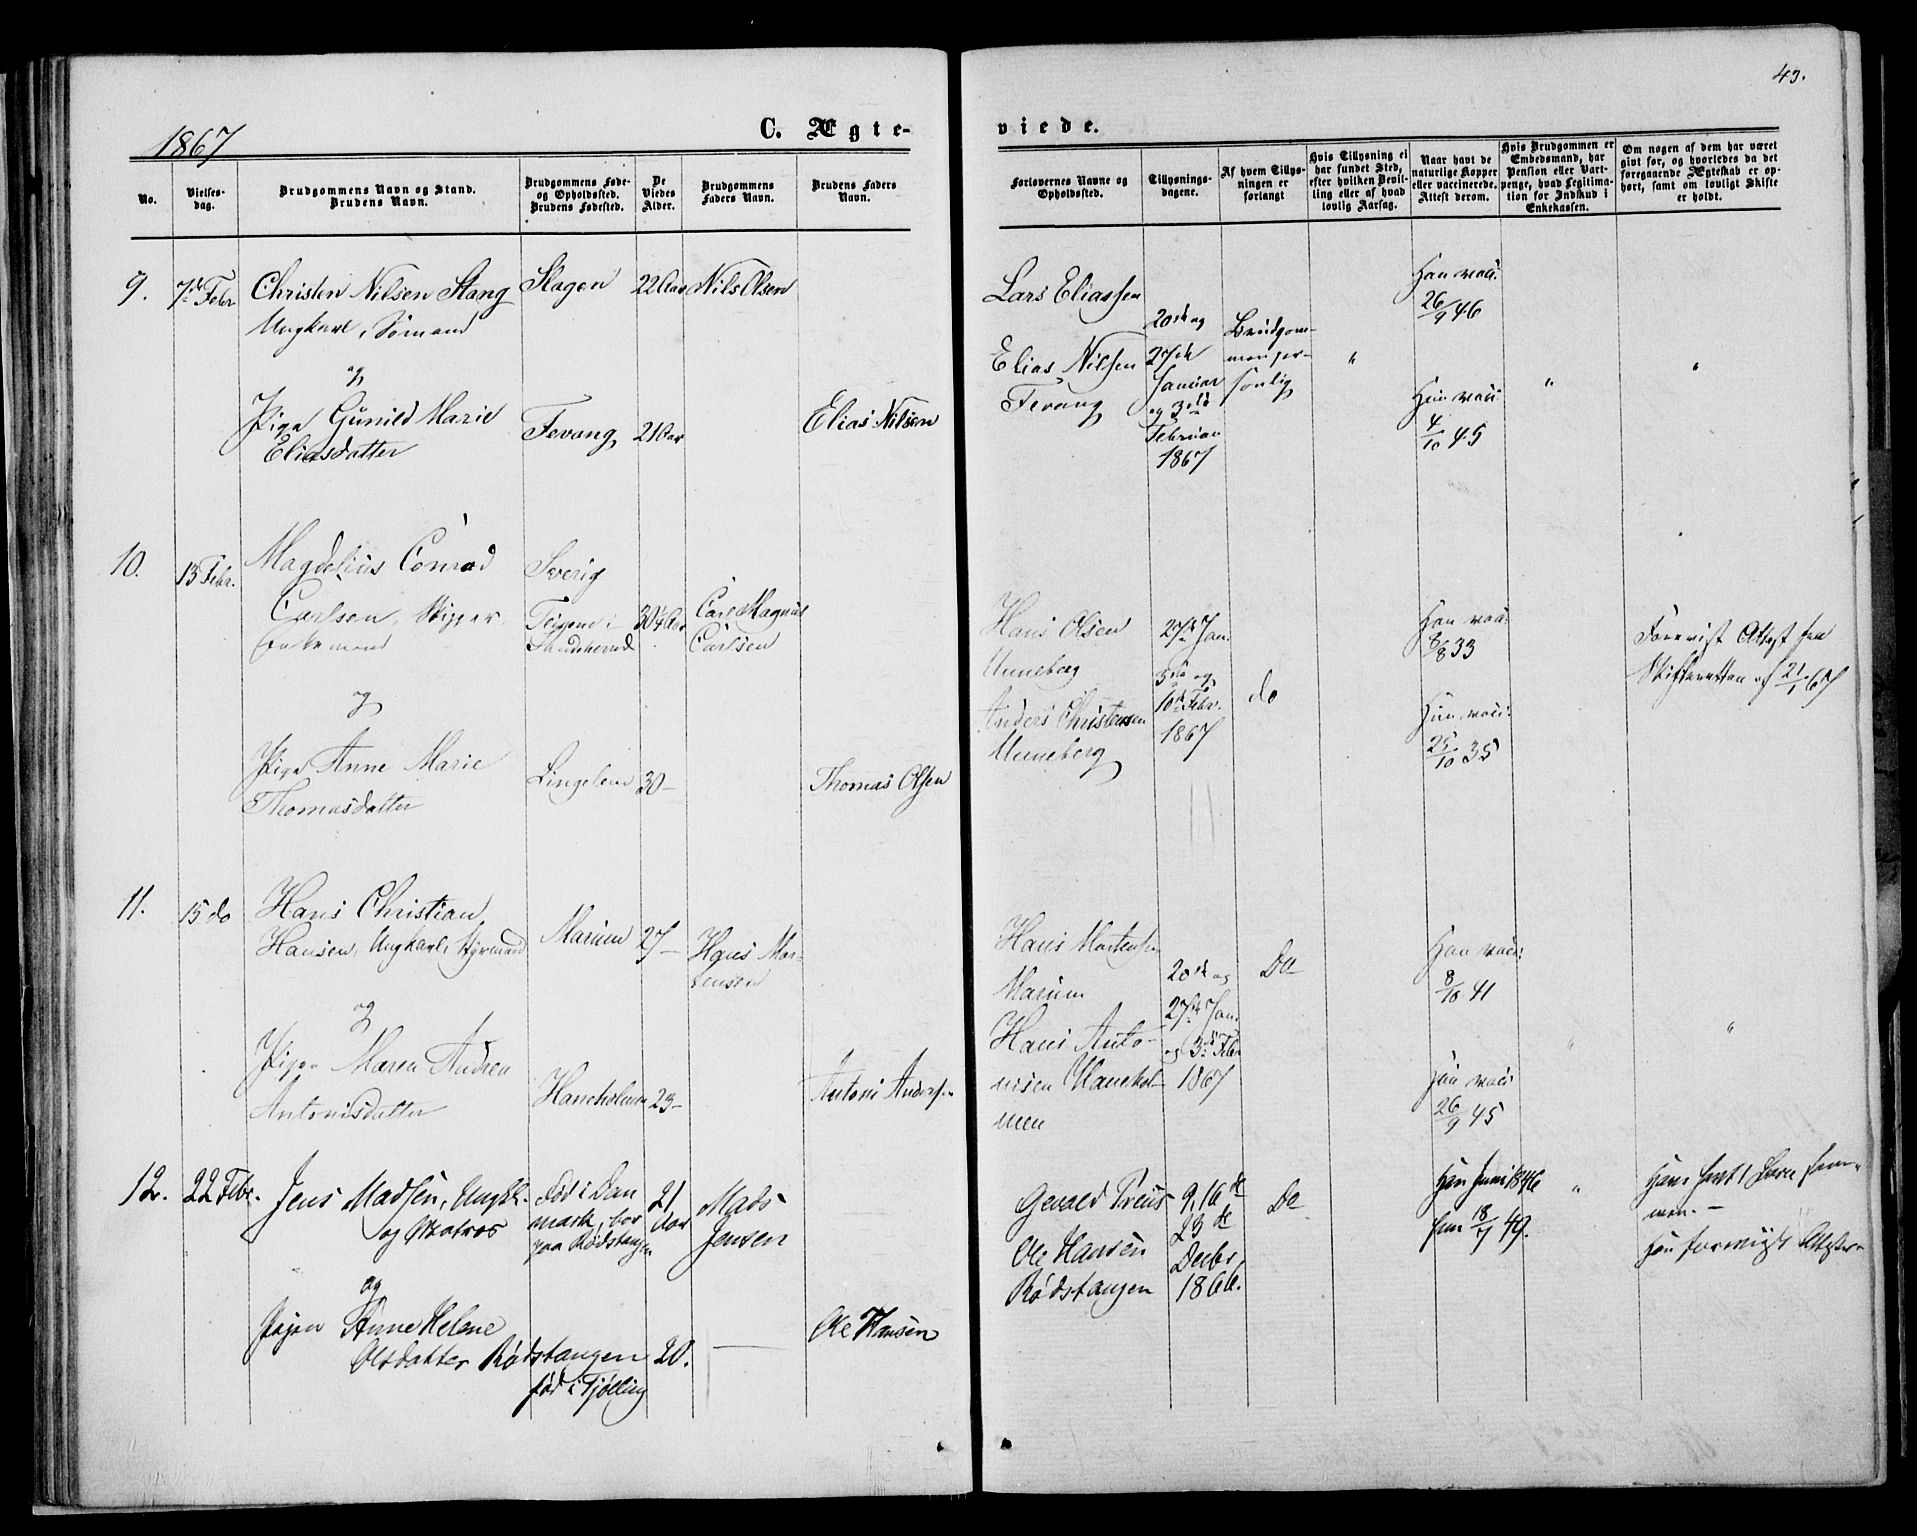 43.
1867
C. Ægte-
viede.
No.
Vielses-
dag.
Brudgommens Navn og Stand.
Brudens Navn.
Brudgommens Føde-
og Opholdssted.
Brudens Fødested.
De
Viedes
Alder.
Brudgommens
Faders Navn.
Brudens Faders
Navn.
Forlovernes Navne og
Opholdssted.
Tillysnings-
dagene.
Af hvem Tillys-
ningen er
forlangt
Hvis Tillysning ei
har fundet Sted,
efter hvilken Bevil-
ling eller af hvad
lovlig Aarsag.
Naar havt de
naturlige Kopper
eller vaccinerede.
Attest derom.
Hvis Brudgommen er
Embedsmand, har
Pension eller Vart-
penge, hvad Legitima-
tion for Indskud i
Enkekassen.
Om nogen af dem har været
gift før, og hvorledes da det
foregaaende Ægteskab er op-
hørt, samt om lovligt Skifte
er holdt.
9.
7de Febr
Christen Nilsen Stang
Ungkarl, Sømand
og
Pige Gunild Marie
Eliasdatter
Skagen
Fevang
22 Aar
21 Aar
Nils Olsen
Elias Nilsen
Lars Eliassen
Elias Nilsen
Fevang
20de og
27de
Januar
og 3die
Februar
1867
Brudgom-
men per-
sonlig
"
Han vacc.
26/9 46
Hun vacc.
4/10 45
"
"
10.
13 Febr.
Magdelius Conrad
Carlsen, Skipper
Enkemand
og
Pige Anne Marie
Thomasdatter
Sverig
Teigene i
Sandeherred
Lingelem
30¼ Aar
30 –
Carl Magnus
Carlsen
Thomas Olsen
Hans Olsen
Unneberg
Anders Christensen
Unneberg
27de Jan.
3die og
10de Febr.
1867
do
Han vacc.
8/8 33
Hun vacc.
25/10 35
Forevist Attest fra
Skifteretten af 21/1 67
11.
15 do
Hans Christian
Hansen, Ungkarl, Styrmand
og
Pige Maren Andrea
Antonisdatter
Marum
Haneholmen
27 –
23 –
Hans Mor-
tensen
Antoni Andersen
Hans Mortensen
Marum
Hans Anto-
nisen Hanehol-
men
20de og
27de Jan.
og 3die Febr
1867
Do
Han vacc.
8/10 41
Hun vacc.
26/9 45
"
"
12.
22 Febr.
Jens Madsen, Ungkl.
og Matros
og
Pigen Anne Helene
Olsdatter Rødstangen
født i Dan
mark, bor
paa Rødstangen
født i Tjølling
21
Aar
20.
Mads
Jensen
Ole Hansen
Ole Hansen
Rødstangen
9, 16 de
23 de
Decbr
1866.
Do
Han Juni 1846
Hun 18/9 49.
"